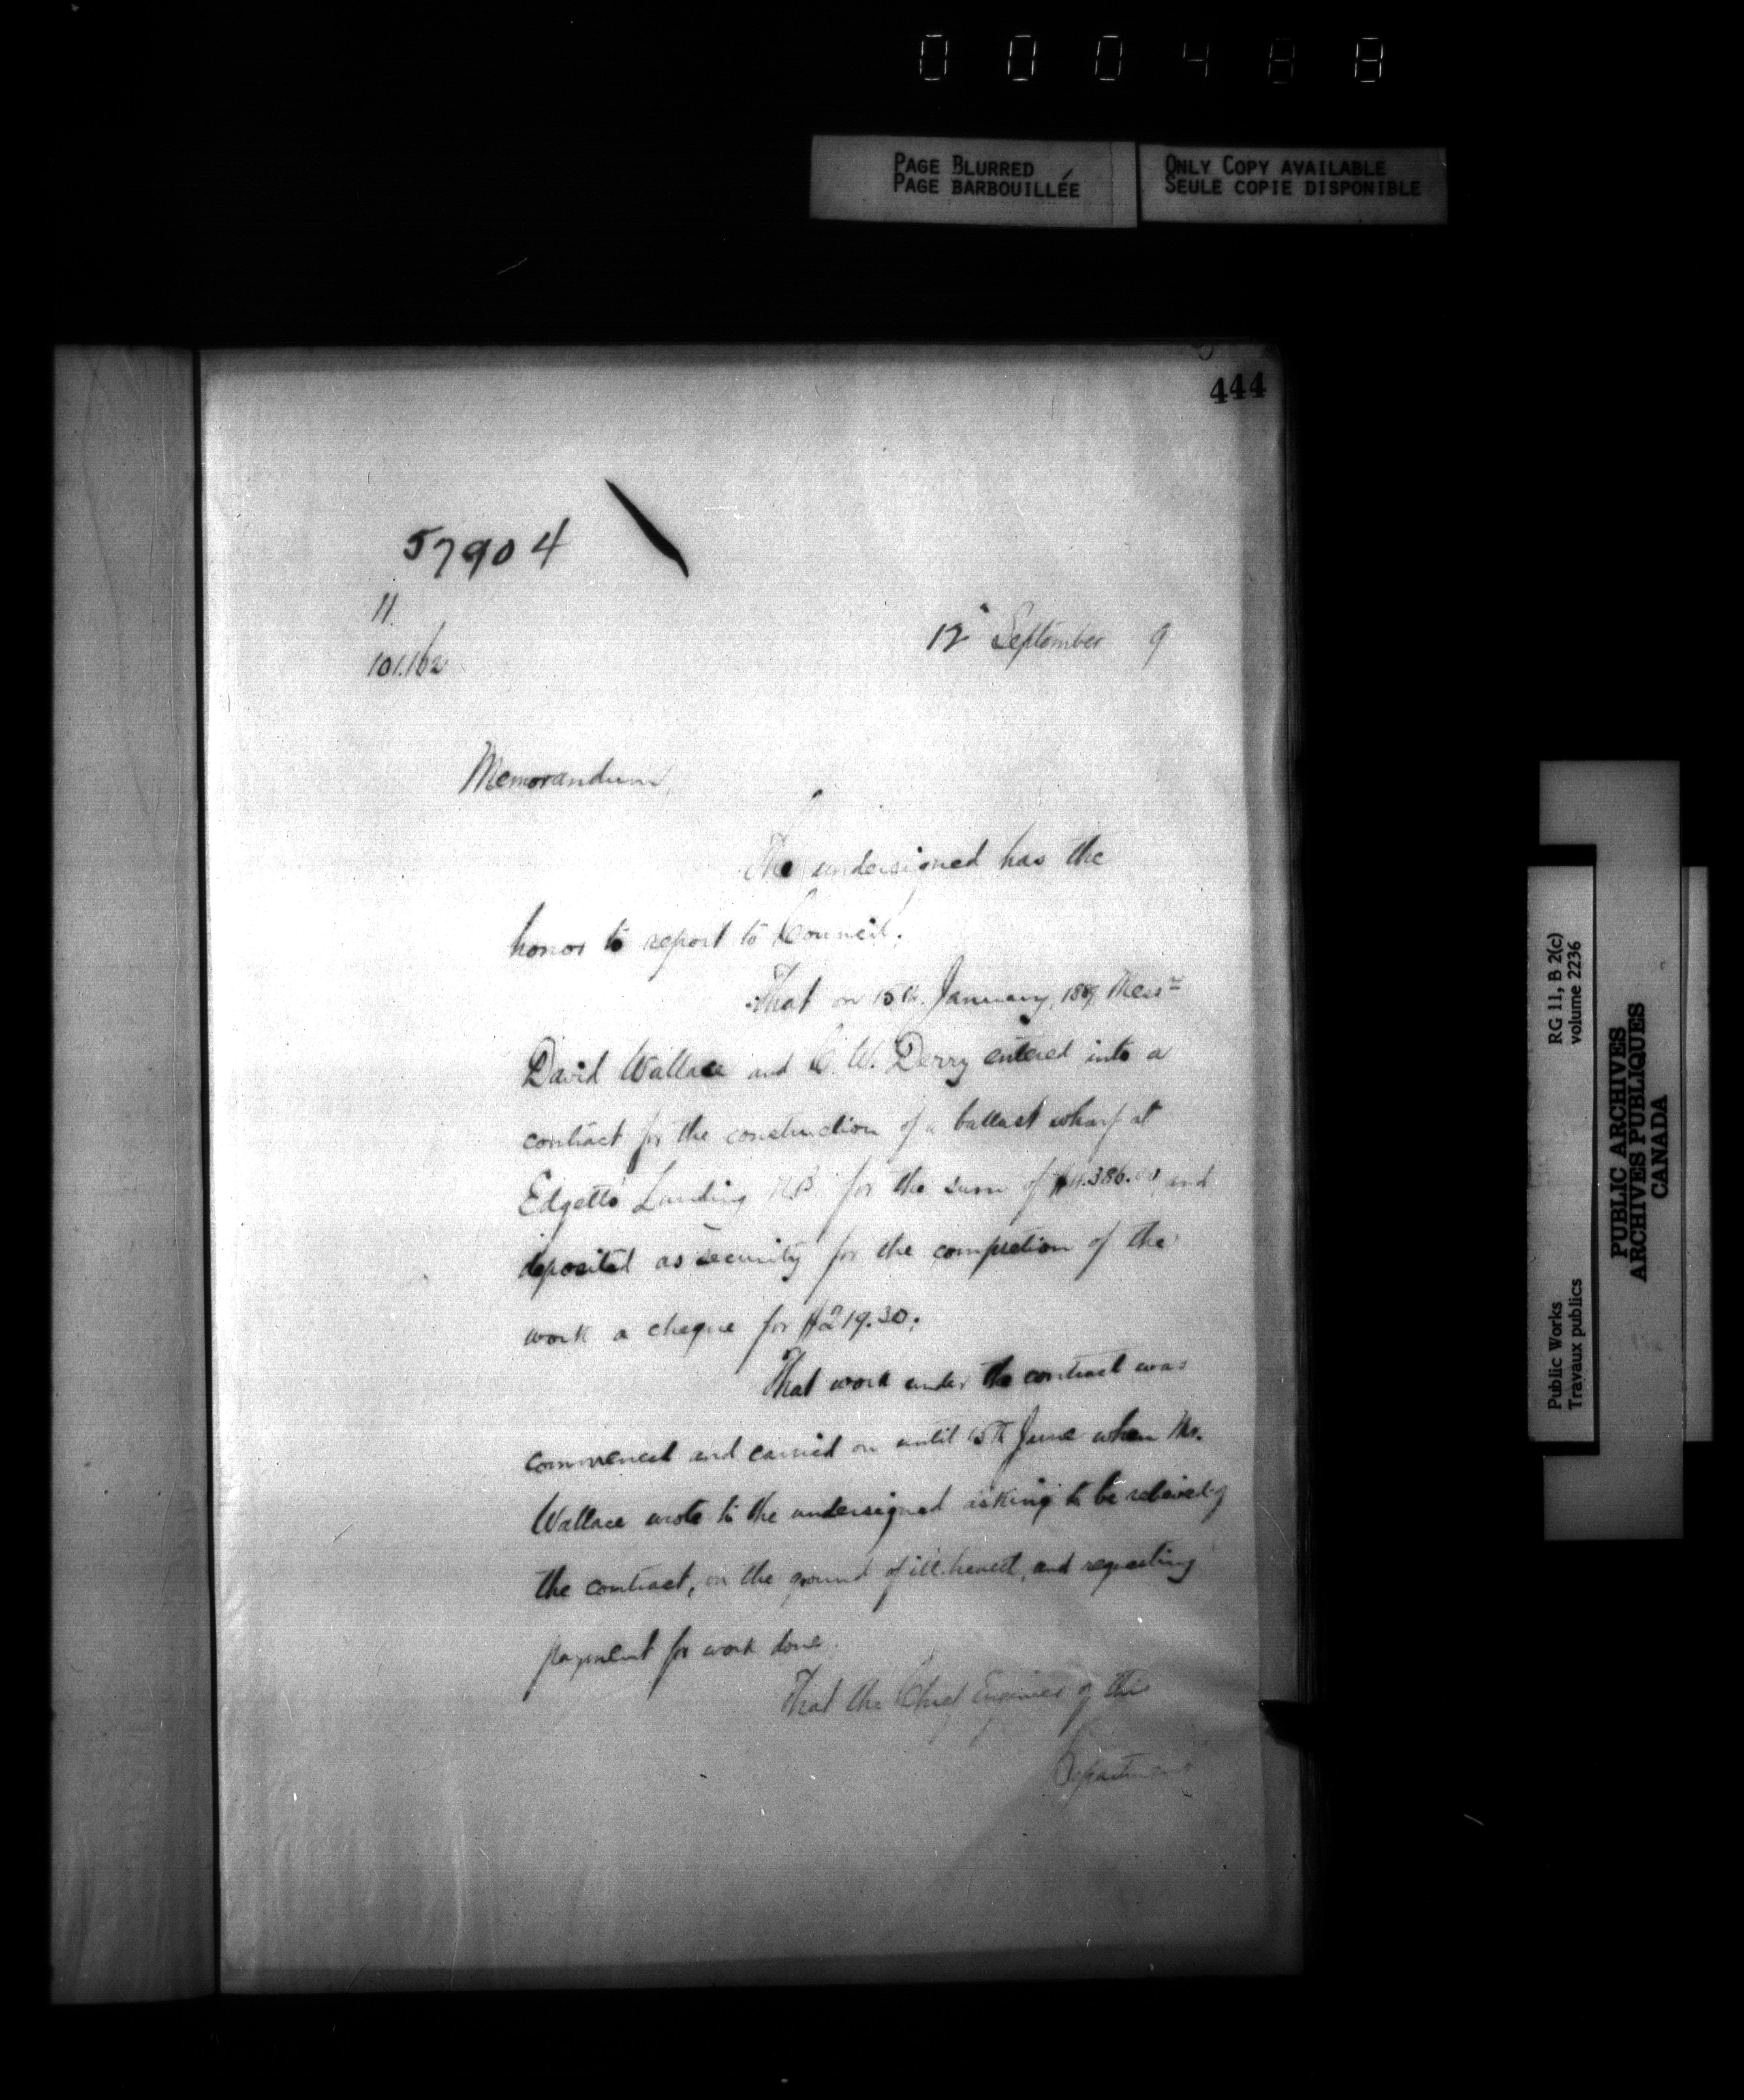 000488
PAGE BLURRED
PAGE BARBOUILLÉE
ONLY COPY AVAILABLE
SEULE COPIE DISPONIBLE
444
57904
11.
101.162
12 September 9
Memorandum,
The undersigned has the
honor to report to Council.
That on 15th. January, 1889, Messrs
David Wallace and C. W. Derry entered into a
contract for the construction of a ballast wharf at
Edgetts Landing N.B for the sum of $4.386.00 and
deposited as security for the completion of the
work a cheque for $219.30;
That work under the contract was
commenced and carried on until 15th June when Mr.
Wallace wrote to the undersigned asking to be relieved of
the contract, on the ground of ill.health, and requesting
payment for work done.
That the Chief Engineer of this
Department
RG 11, B 2(c)
volume 2236
Public Works
Travaux publics
PUBLIC ARCHIVES
ARCHIVES PUBLIQUES
CANADA